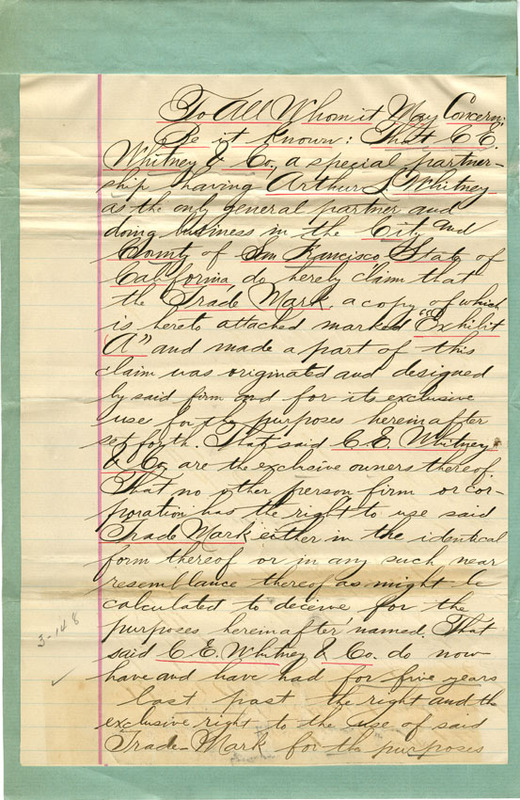 To All Whom it May Concern:
Be it Known: That C. E.
Whitney & Co., a special partner-
ship having Arthur L. Whitney
as the only general partner and
doing business in the City and
County of San Francisco State of
California, do hereby claim that
the Trade Mark, a copy of which
is hereto attached marked "Exhibit
A" and made a part of this
claim was originated and designed
by said firm and for its exclusive
use for the purposes hereinafter
set forth. That said C. E. Whitney
& Co. are the exclusive owners thereof.
That no other person firm or cor-
poration has the right to use said
Trade Mark either in the identical
form thereof or in any such near
resemblance thereof as might be
calculated to deceive for the
purposes hereinafter named. That
said C. E. Whitney & Co. do now
have and have had for five years
last past the right and the
exclusive right to the use of said
Trade-Mark for the purposes
3-148